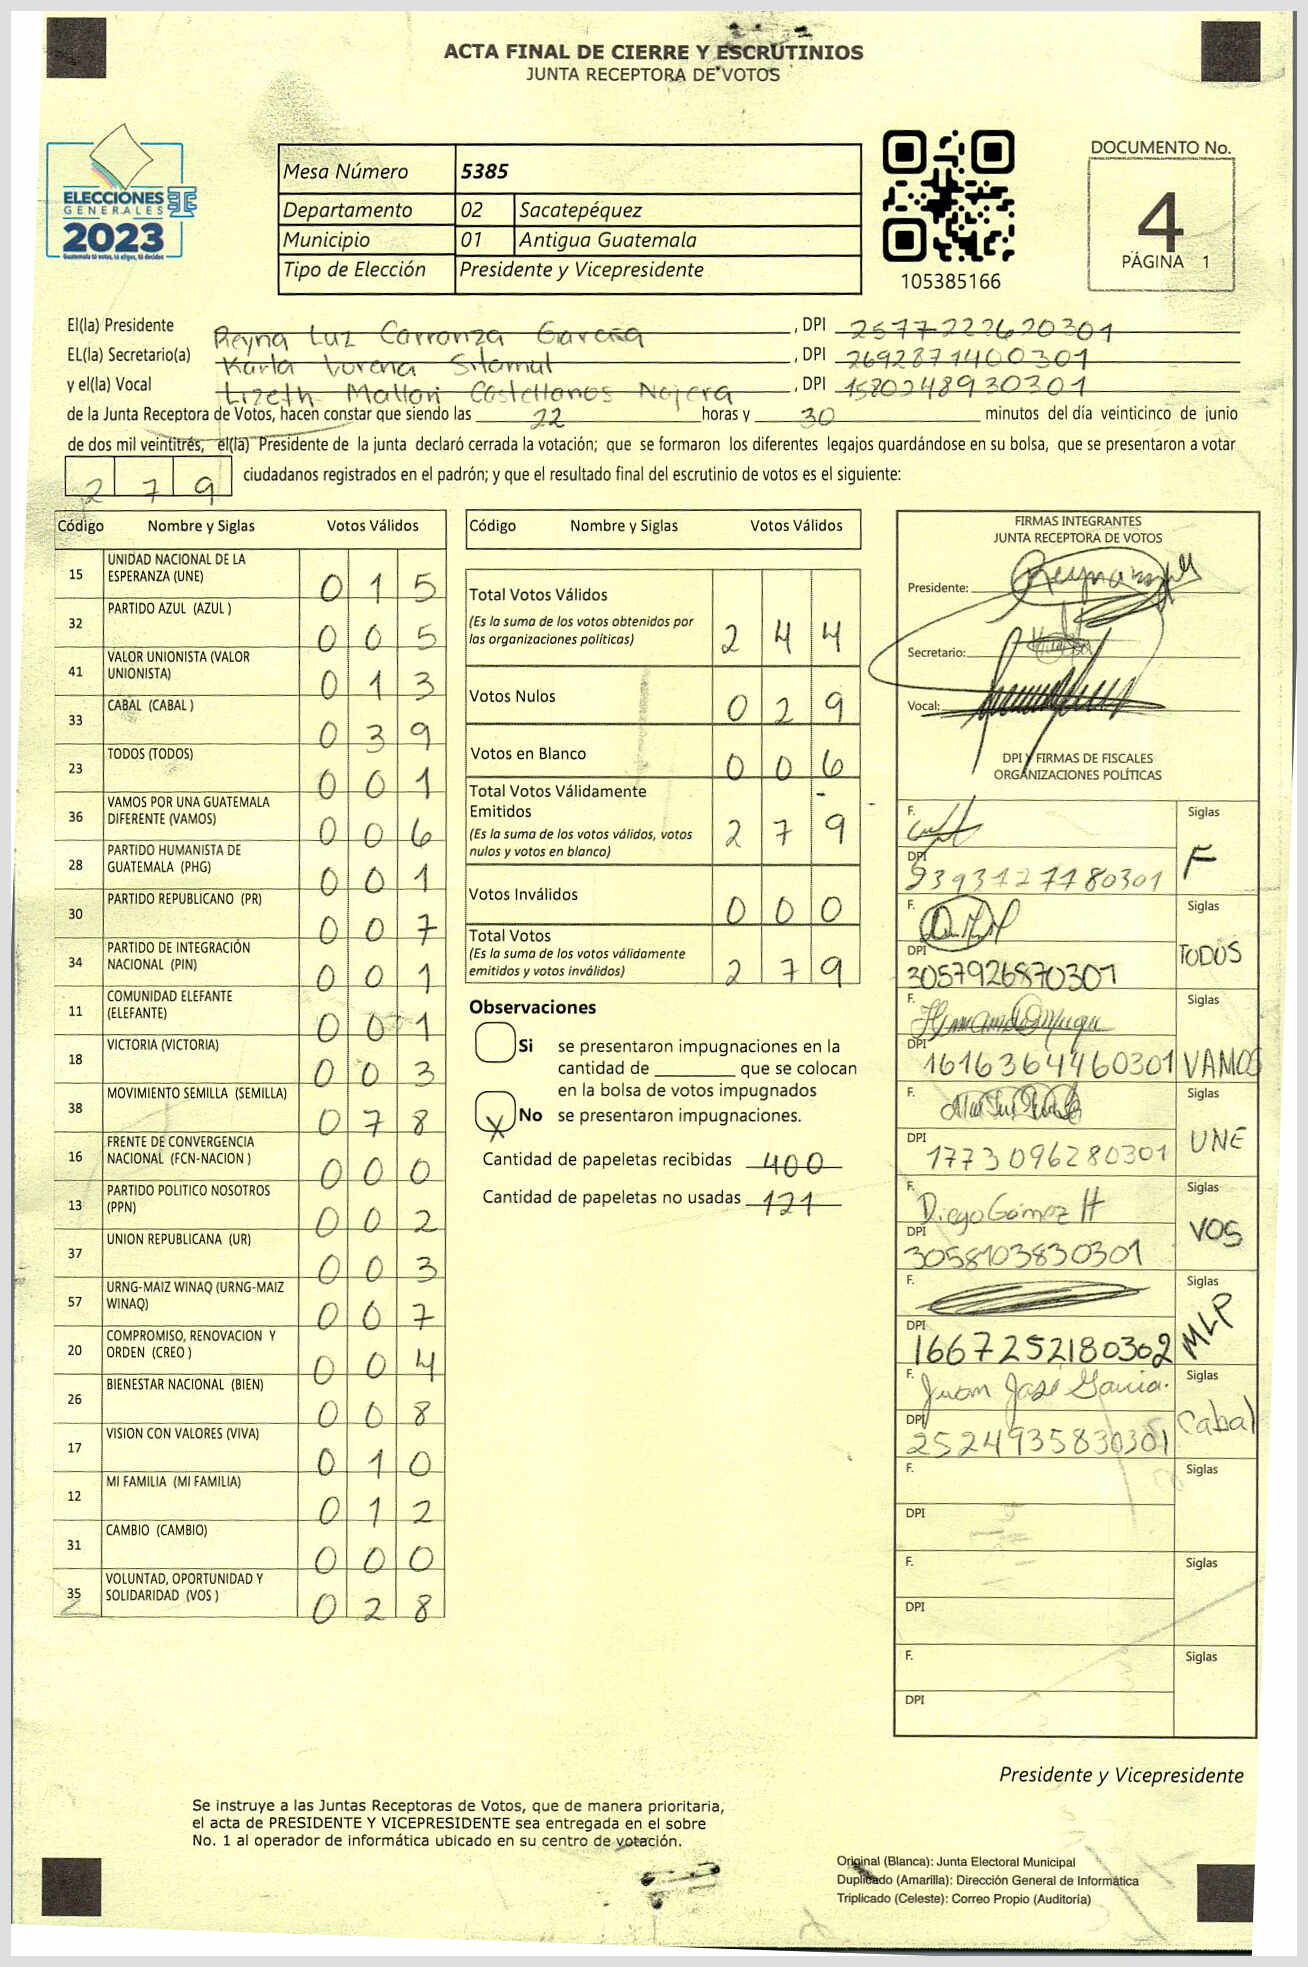 ACTA FINAL DE CIERRE Y ESCRUTINIOS
JUNTA RECEPTORA DE VOTOS
ELECCIONES
GENERALES
2023
Guatemala tú votas, tú eliges, tú decides
Mesa Número 5385
Departamento 02 Sacatepéquez
Municipio 01 Antigua Guatemala
Tipo de Elección Presidente y Vicepresidente
105385166
DOCUMENTO No.
4
PÁGINA 1
El(la) Presidente Reyna Luz Carranza García, DPI 2577222620301
EL(la) Secretario(a) Karla Lorena Sitamul, DPI 2692871400301
y el(la) Vocal Lizeth Mallori Castellanos Najera, DPI 1580248930301
de la Junta Receptora de Votos, hacen constar que siendo las 22 horas y 30 minutos del día veinticinco de junio
de dos mil veintitrés, el(la) Presidente de la junta declaró cerrada la votación; que se formaron los diferentes legajos guardándose en su bolsa, que se presentaron a votar
279 ciudadanos registrados en el padrón; y que el resultado final del escrutinio de votos es el siguiente:
Código Nombre y Siglas Votos Válidos
15 UNIDAD NACIONAL DE LA
ESPERANZA (UNE) 015
32 PARTIDO AZUL (AZUL ) 005
41 VALOR UNIONISTA (VALOR
UNIONISTA) 013
33 CABAL (CABAL ) 039
23 TODOS (TODOS) 001
36 VAMOS POR UNA GUATEMALA
DIFERENTE (VAMOS) 006
28 PARTIDO HUMANISTA DE
GUATEMALA (PHG) 001
30 PARTIDO REPUBLICANO (PR) 007
34 PARTIDO DE INTEGRACIÓN
NACIONAL (PIN) 001
11 COMUNIDAD ELEFANTE
(ELEFANTE) 001
18 VICTORIA (VICTORIA) 003
38 MOVIMIENTO SEMILLA (SEMILLA) 078
16 FRENTE DE CONVERGENCIA
NACIONAL (FCN-NACION ) 000
13 PARTIDO POLITICO NOSOTROS
(PPN) 002
37 UNION REPUBLICANA (UR) 003
57 URNG-MAIZ WINAQ (URNG-MAIZ
WINAQ) 007
20 COMPROMISO, RENOVACION Y
ORDEN (CREO ) 004
26 BIENESTAR NACIONAL (BIEN) 008
17 VISION CON VALORES (VIVA) 010
12 MI FAMILIA (MI FAMILIA) 012
31 CAMBIO (CAMBIO) 000
35 VOLUNTAD, OPORTUNIDAD Y
SOLIDARIDAD (VOS ) 028
Código Nombre y Siglas Votos Válidos
Total Votos Válidos
(Es la suma de los votos obtenidos por
las organizaciones políticas) 244
Votos Nulos 029
Votos en Blanco 006
Total Votos Válidamente
Emitidos
(Es la suma de los votos válidos, votos
nulos y votos en blanco) 279
Votos Inválidos 000
Total Votos
(Es la suma de los votos válidamente
emitidos y votos inválidos) 279
Observaciones
Si se presentaron impugnaciones en la
cantidad de ________ que se colocan
en la bolsa de votos impugnados
X No se presentaron impugnaciones.
Cantidad de papeletas recibidas 400
Cantidad de papeletas no usadas 121
FIRMAS INTEGRANTES
JUNTA RECEPTORA DE VOTOS
Presidente:
Secretario:
Vocal:
DPI Y FIRMAS DE FISCALES
ORGANIZACIONES POLÍTICAS
F. Siglas
F
DPI
F. Siglas
TODOS
DPI 3057926870301
F. Siglas
VAMOS
DPI 1616364460301
F. Siglas
UNE
DPI 1773096280301
F. Diego Gómez H Siglas
VOS
DPI 3058103830301
F. Siglas
MLP
DPI 1667252180302
F. Juan José Garcia. Siglas
Cabal
DPI 2524935830301
F. Siglas
DPI
F. Siglas
DPI
F. Siglas
DPI
Presidente y Vicepresidente
Se instruye a las Juntas Receptoras de Votos, que de manera prioritaria,
el acta de PRESIDENTE Y VICEPRESIDENTE sea entregada en el sobre
No. 1 al operador de informática ubicado en su centro de votación.
Original (Blanca): Junta Electoral Municipal
Duplicado (Amarilla): Dirección General de Informática
Triplicado (Celeste): Correo Propio (Auditoría)